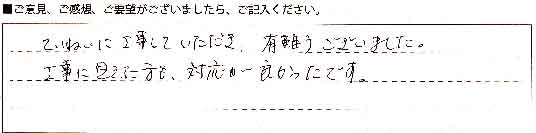 ■ご意見、ご感想、ご要望がございましたら、ご記入ください。
ていねいに工事していただき、有難うございました。
工事に見えた方も、対応が良かったです。